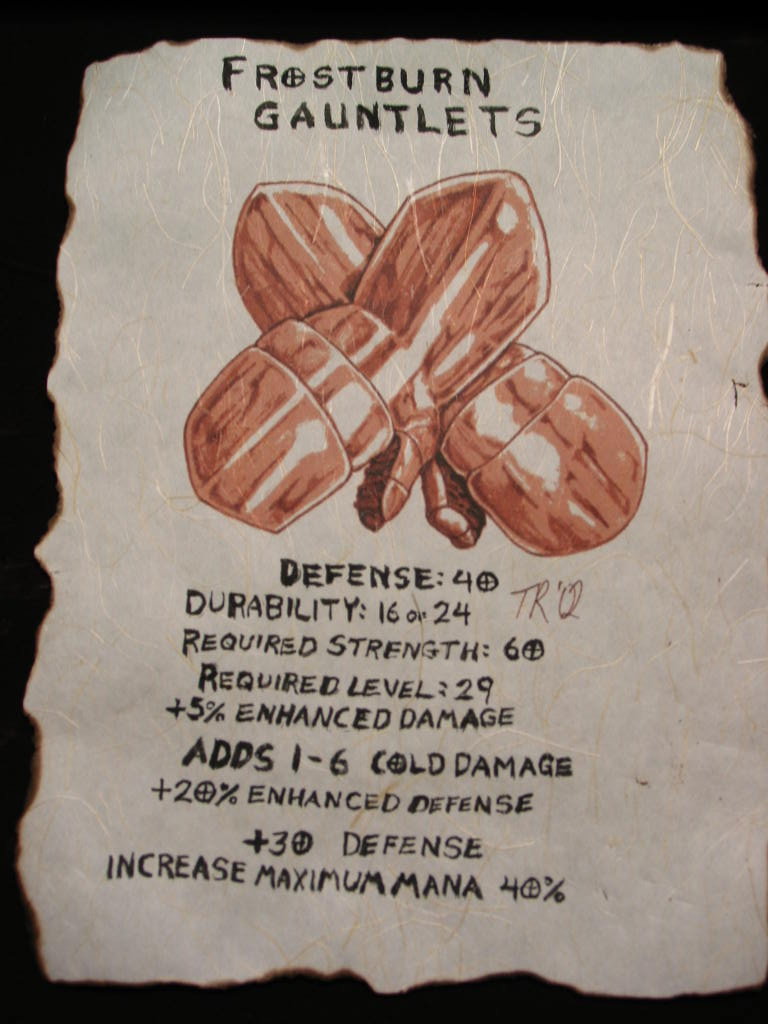 FROSTBURN
GAUNTLETS
DEFENSE: 40
DURABILITY: 16 or 24
REQUIRED STRENGTH: 60
REQUIRED LEVEL: 29
+5% ENHANCED DAMAGE
ADDS 1-6 COLD DAMAGE
+20% ENHANCED DEFENSE
+30 DEFENSE
INCREASE MAXIMUM MANA 40%